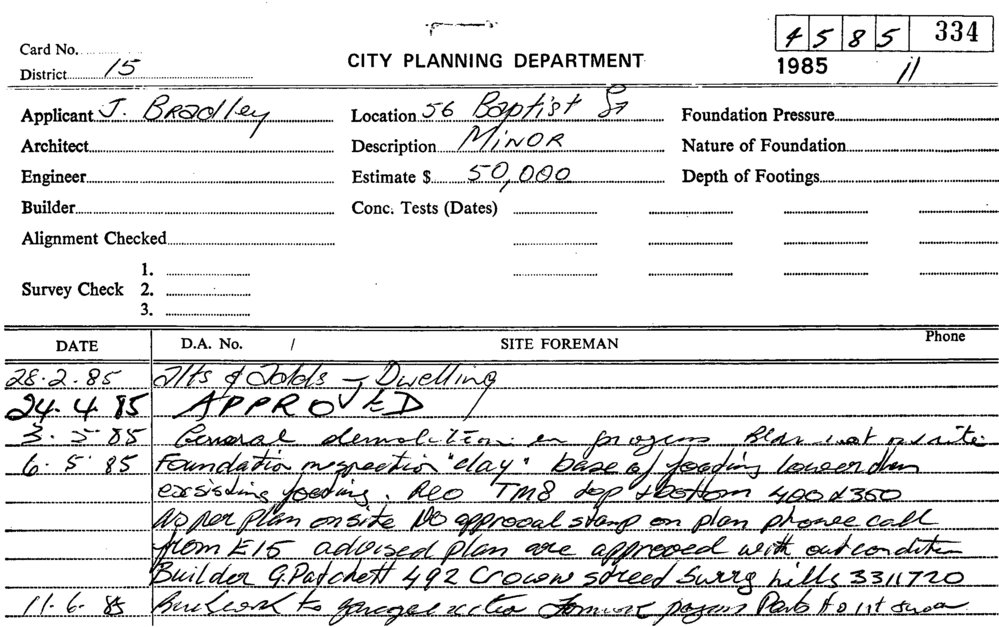 4 5 8 5 334
Card No.
CITY PLANNING DEPARTMENT
1985 11
District 15
Applicant J. Bradley Location 56 Baptist St Foundation Pressure
Architect Description MINOR Nature of Foundation
Engineer Estimate $ 50,000 Depth of Footings
Builder Conc. Tests (Dates)
Alignment Checked
1.
Survey Check 2.
3.
DATE D.A. No. / SITE FOREMAN Phone
28.2.85 Alts & Adds - Dwelling
24.4.85 APPROVED
3.5.85 General demolition in progress Bldr not on site
6.5.85 Foundation inspection "clay" base of footing lower than
exsisting footing. Reo TM8 top & bottom 400 x 350
As per plan on site No approval stamp on plan phone call
from E15 advised plan are approved with out condition
Builder G. Patchett 492 Crown street Surry hills 3311720
11.6.85 to garage progress to 1st